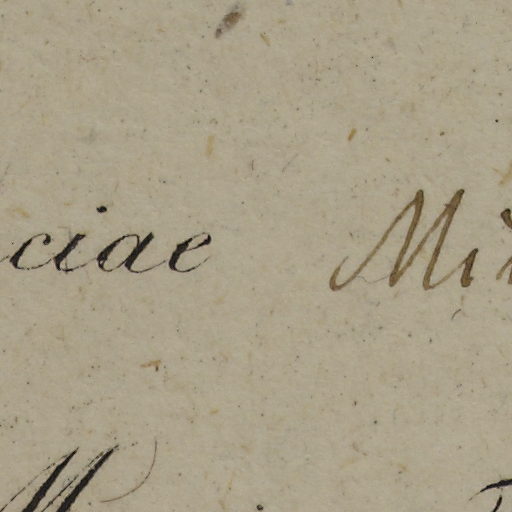 ciae Mi
M